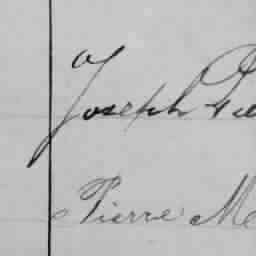 Joseph
Pierre Me